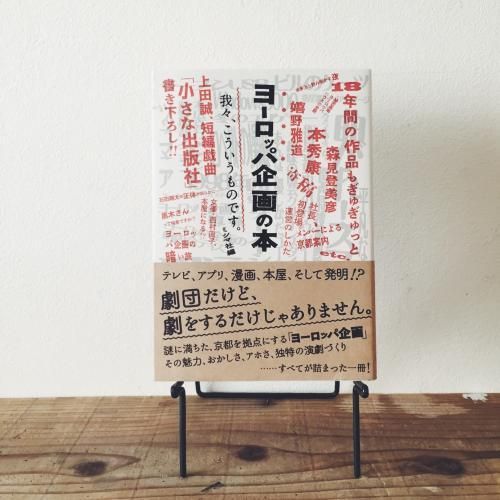 18年間の作品もぎゅぎゅっと
森見登美彦
本秀康
寄稿
嬉野雅道
社長、
初登場
運営のしかた
メンバーによる
京都案内
etc.
ヨーロッパ企画の本
我々、こういうものです。
ミシマ社編
上田誠、短編戯曲
「小さな出版社」
書き下ろし!!
女優・西村直子、
本屋になる?
黒木さん
ヨーロッ
パ企画の
暗い旅
テレビ、アプリ、漫画、本屋、そして発明!?
劇団だけど、
劇をするだけじゃありません。
謎に満ちた、京都を拠点にする「ヨーロッパ企画」
その魅力、おかしさ、アホさ、独特の演劇づくり
……すべてが詰まった一冊!